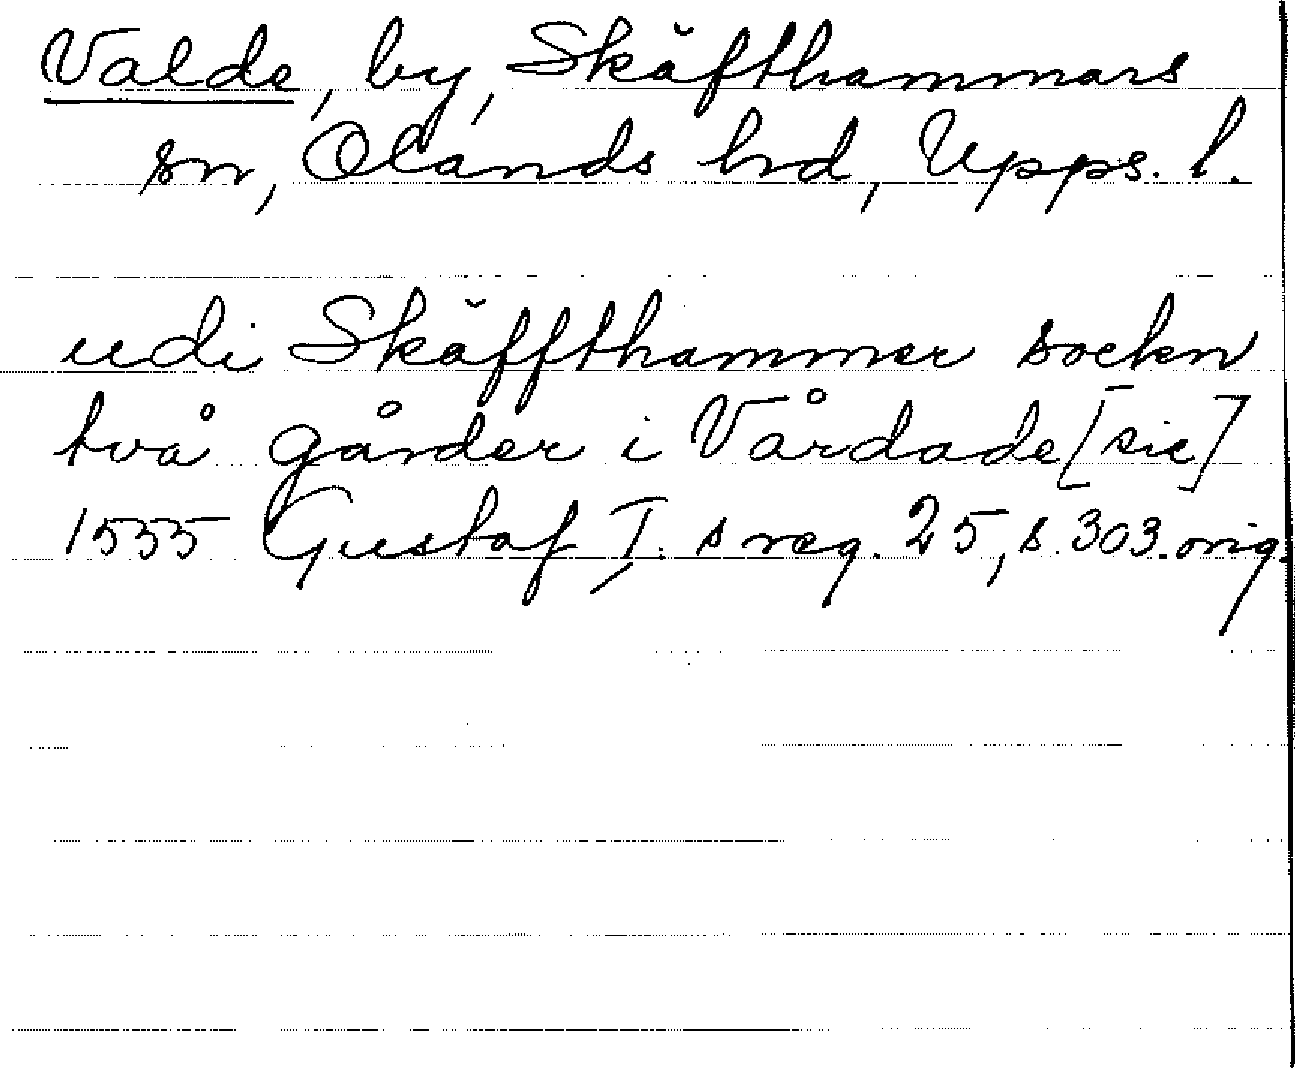 Valde, by, Skäfthammars
sn, Olands hd, Upps. l.
udi Skäffthammer sockn
två gårder i Vårdade [sic]
1555 Gustaf I. s reg. 25, s. 303. orig.